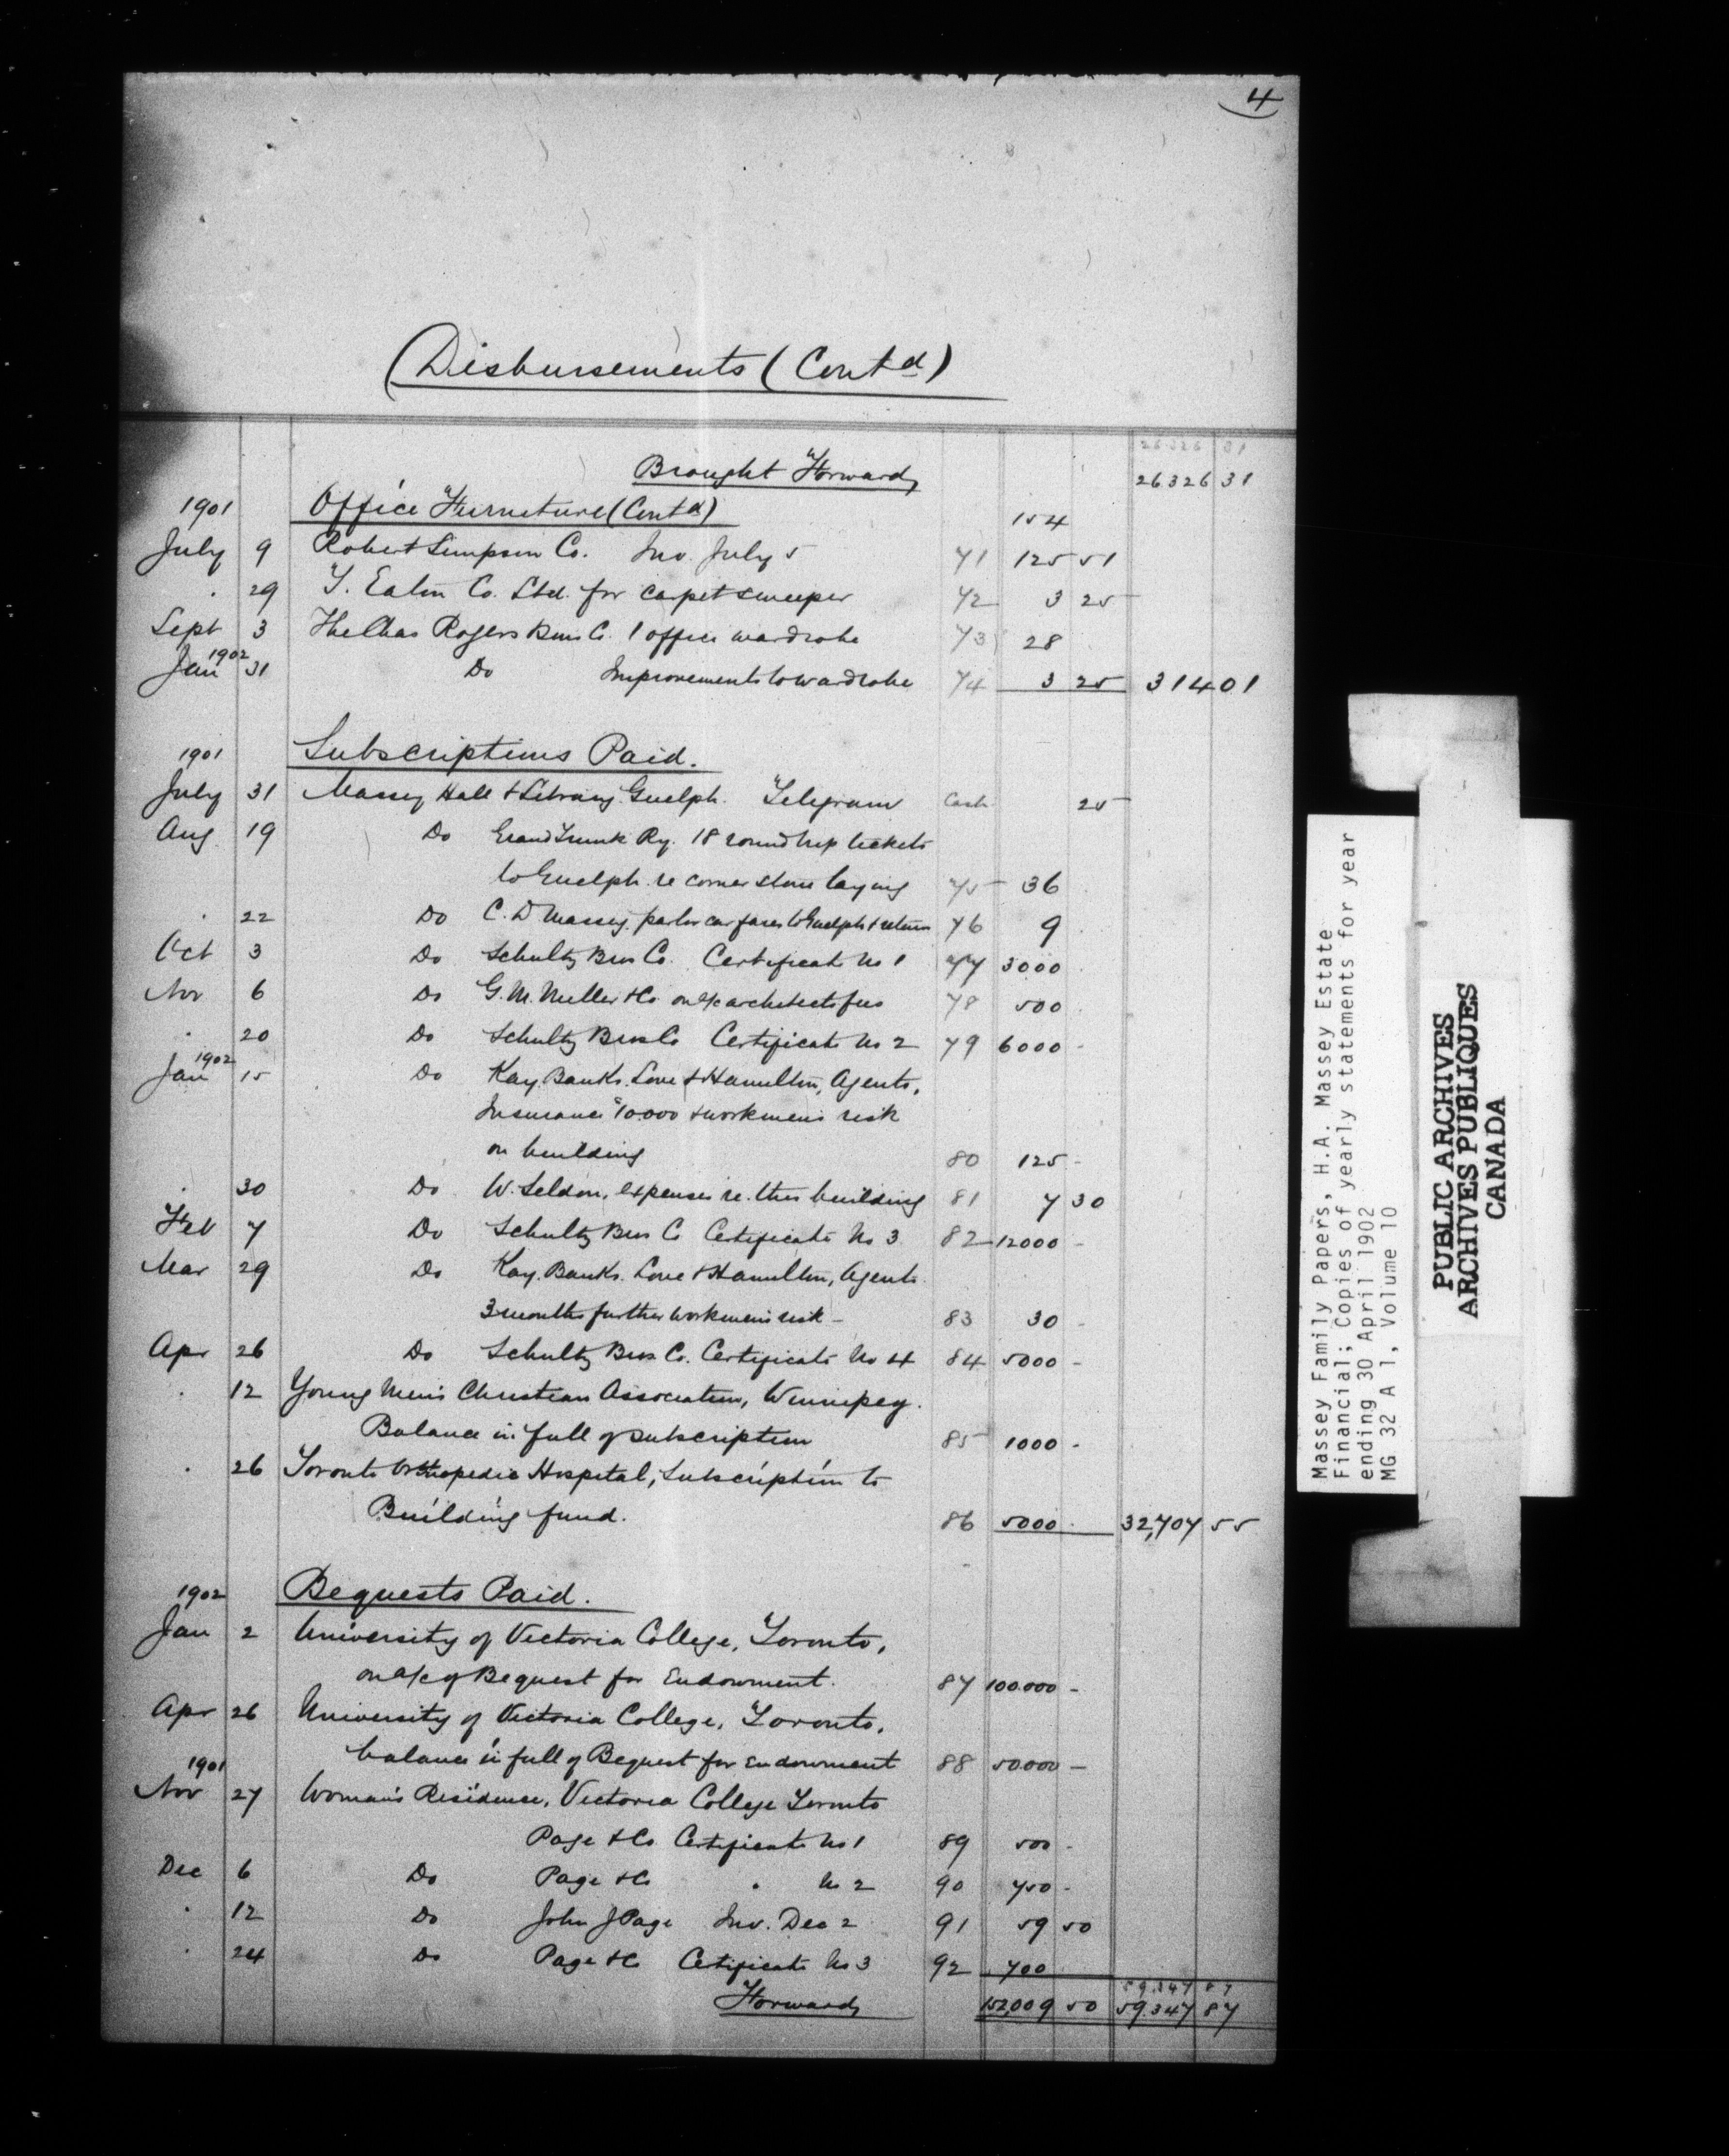 4
Disbursements (Contd)
26326 31
Brought Forward 26326 31
1901 Office Furniture (Contd) 154
July 9 Robert Simpson Co. Inv. July 5 71 125 51
. 29 T. Eaton Co. Ltd. for carpet sweeper 72 3 25
Sept 3 The Chas Rogers Bros Co. 1 office wardrobe 73 28
1902
Jan 31 Do Improvements to wardrobe 74 3 25 314 01
1901 Subscriptions Paid.
July 31 Massey Hall & Library Guelph. Telegram Cash 25
Aug. 19 Do Grand Trunk Ry. 18 round trip tickets
to Guelph re corner stone laying 75 36
. 22 Do C. D Massey. parlor car fares to Guelph & return 76 9
Oct 3 Do Schultz Bros Co. Certificate No 1 77 3000
Nov 6 Do G. M. Miller & Co on a/c architects fees 78 500
. 20 Do Schultz Bros Co Certificate No 2 79 6000 -
1902
Jan 15 Do Kay. Banks. Love & Hamilton, Agents,
Insurance $10.000 & workmens risk
on building 80 125 -
. 30 Do W. Seldon, expenses re. this building 81 7 30
Feb 7 Do Schultz Bros Co Certificate No 3 82 12000 -
Mar 29 Do Kay. Banks. Love & Hamilton, Agents.
3 months further workmens risk - 83 30 -
Apr 26 Do Schultz Bros. Co. Certificate No 4 84 5000 -
. 12 Young Men's Christian Association, Winnipeg.
Balance in full of subscription 85 1000 -
. 26 Toronto Orthopedic Hospital, Subscription to
Building fund. 86 5000 . 32,707 55
1902 Bequests Paid.
Jan 2 University of Victoria College, Toronto,
on a/c of Bequest for Endowment. 87 100.000 -
Apr 26 University of Victoria College, Toronto,
balance in full of Bequest for Endowment 88 50.000 -
1901
Nov 27 Woman's Residence, Victoria College Toronto
Page & Co. Certificate No 1 89 500 -
Dec 6 Do Page & Co . No 2 90 750 -
. 12 Do John J Page Inv. Dec 2 91 59 50
. 24 Do Page & Co Certificate No 3 92 700
59.347 87
Forward 152,009 50 59.347 87
Massey Family Papers, H.A. Massey Estate
Financial; Copies of yearly statements for year
ending 30 April 1902
MG 32 A 1, Volume 10
PUBLIC ARCHIVES
ARCHIVES PUBLIQUES
CANADA